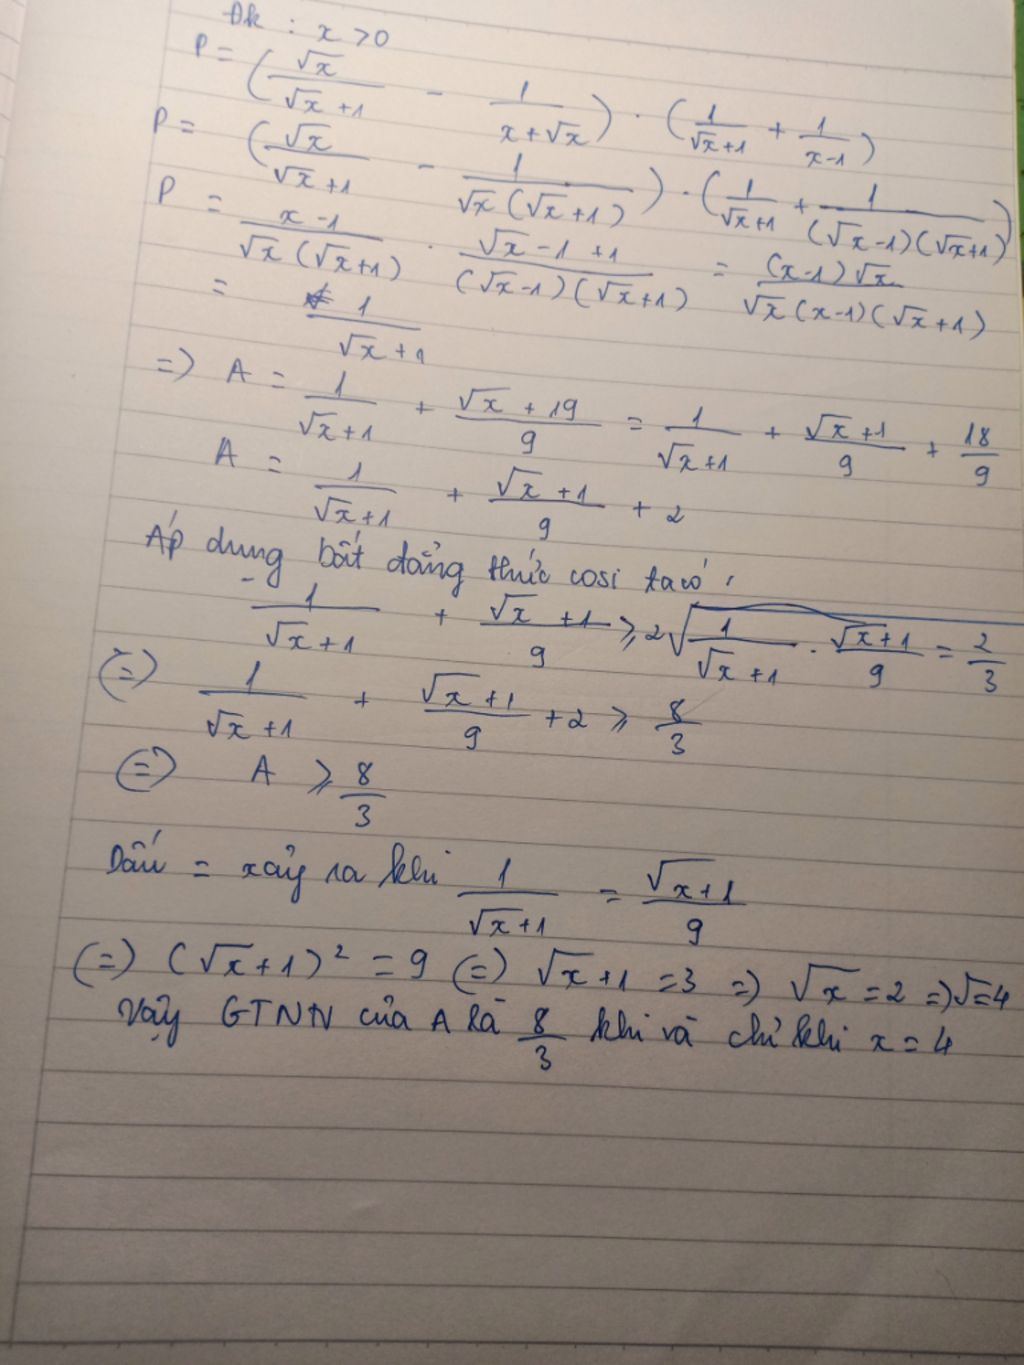 Đk : x > 0
P = (√x/(√x+1) - 1/(x+√x)) . (1/(√x+1) + 1/(x-1))
P = (√x/(√x+1) - 1/(√x(√x+1))) . (1/(√x+1) + 1/((√x-1)(√x+1)))
P = (x-1)/(√x(√x+1)) . (√x-1+1)/((√x-1)(√x+1)) = ((x-1)√x)/(√x(x-1)(√x+1))
= 1/(√x+1)
=) A = 1/(√x+1) + (√x+19)/9 = 1/(√x+1) + (√x+1)/9 + 18/9
A = 1/(√x+1) + (√x+1)/9 + 2
Áp dụng bất đẳng thức cosi ta có :
1/(√x+1) + (√x+1)/9 ⩾ 2√(1/(√x+1) . (√x+1)/9) = 2/3
(=) 1/(√x+1) + (√x+1)/9 + 2 ⩾ 8/3
(=) A ⩾ 8/3
Dấu = xảy ra khi 1/(√x+1) = (√x+1)/9
(=) (√x+1)² = 9 (=) √x+1 = 3 =) √x = 2 =) √=4
Vậy GTNN của A là 8/3 khi và chỉ khi x = 4